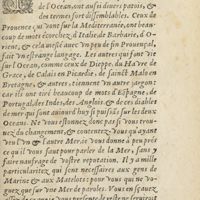 de l'Ocean, ont aussi divers patois, &
des termes fort dissemblables. Ceux de
Provence, qui vont sur la Mediterranée, ont beau-
coup de mots écorchez, d'Italie, de Barbarie, d'O-
rient, & cela meslé avec un peu de fin Provençal,
fait une estrange langue. Les autres qui font vie
sur l'Ocean, comme ceux de Dieppe, du Havre de
Grace, de Calais en Picardie, de sainct Malo en
Bretagne, & autres, iargonnent un autre
car ils ont tiré beaucoup de mots d'Espagne, de
Portugal, des Indes, des Anglois, & de ces diables
de mer qui sont aujourd'huy si puissãs sur les deux
Oceans. Ne vous estonnez donc pas si vous trou-
uez du changement, & contentez-vous qu'ayant
veu l'un & l'autre Mer, ie vous donne à peu prés
ce qu'il vous faut pour parler de la Mer, sans
faire naufrage de vostre reputation. Il y a mille
particularitez, qui sont necessaires aux gens de
Marine & aux Matelots; pour vous qui ne vo-
guez que sur une Mer de paroles. Vous en sçaurez